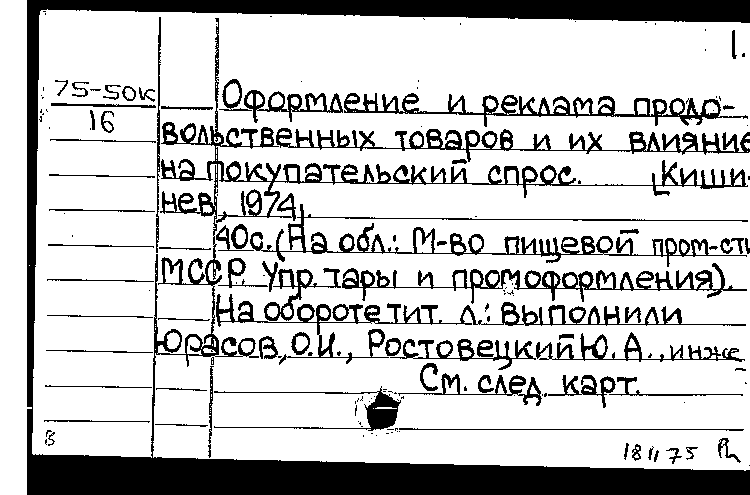 1.
75-50к
16
Оформление и реклама продо-
вольственных товаров и их влияние
на покупательский спрос. [Киши-
нев, 1974].
40с. (На обл.: М-во пищевой пром-сти
МССР. Упр. тары и промоформления).
На обороте тит. л.: выполнили
Юрасов, О.И., Ростовецкий Ю.А., инже
См. след. карт.
В
18 11 75